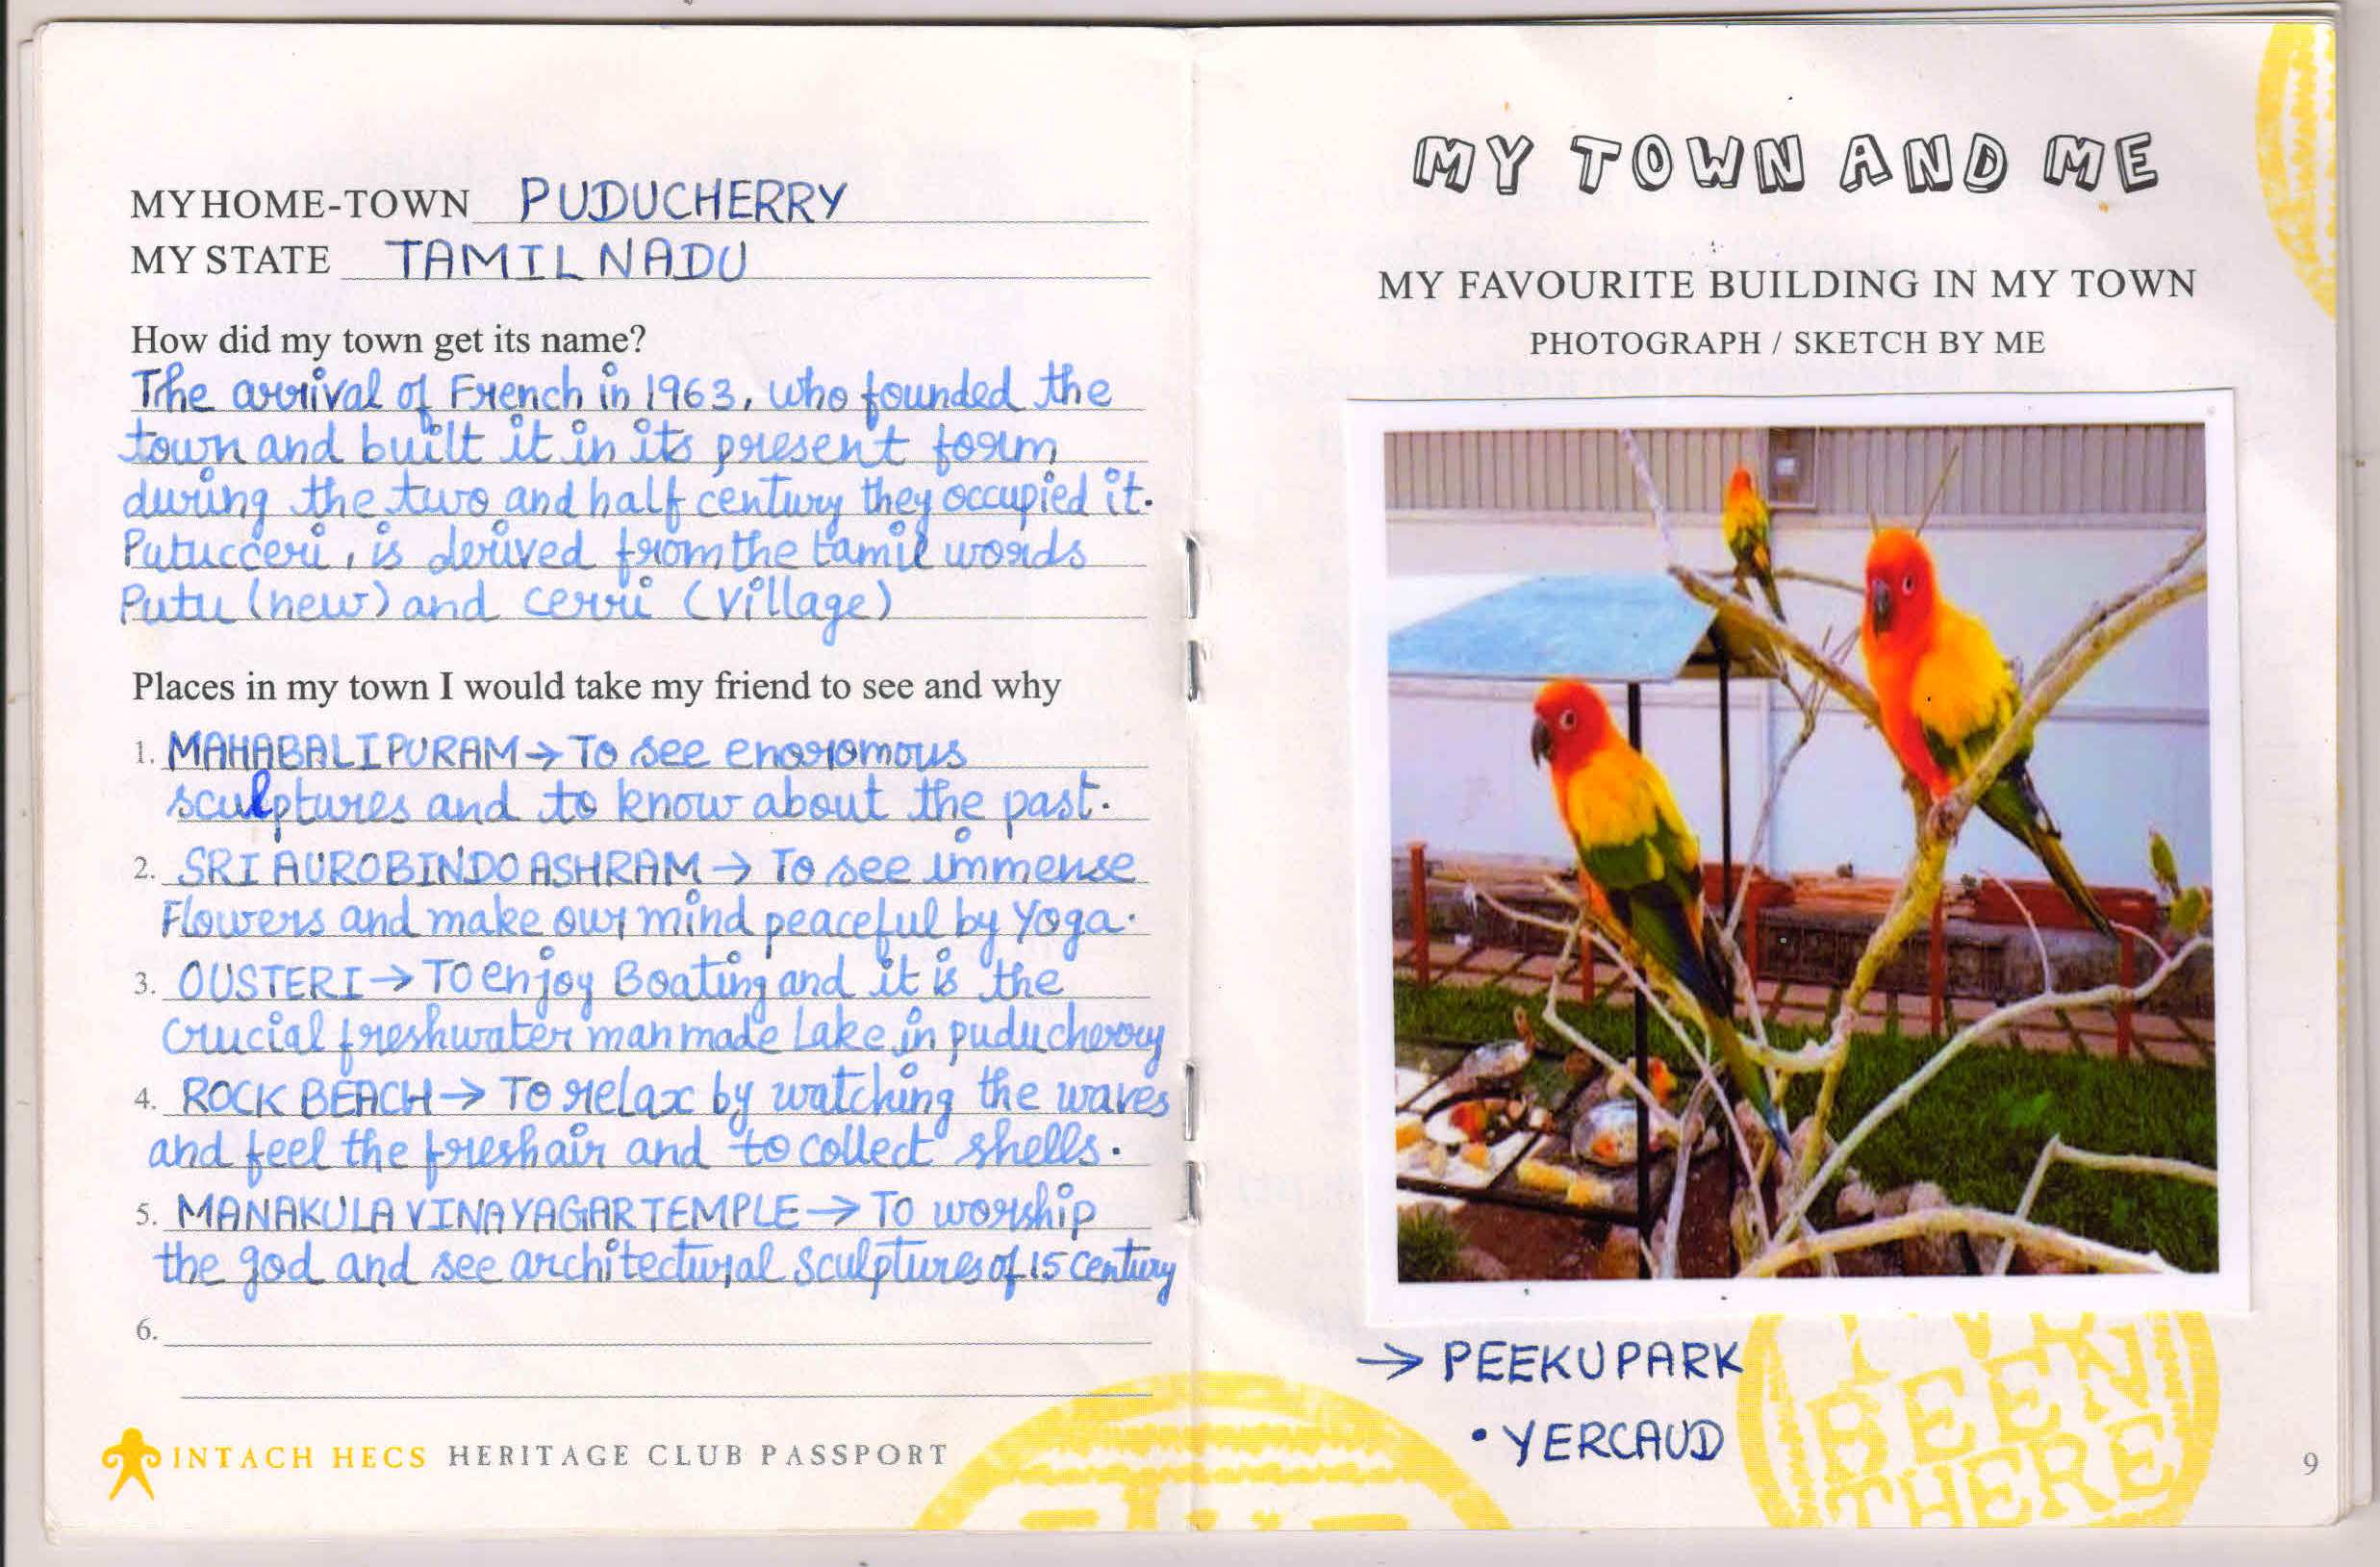 MY HOME-TOWN PUDUCHERRY
MY STATE TAMIL NADU
How did my town get its name?
The arrival of French in 1963, who founded the
town and built it in its present form
during the two and half century they occupied it.
Putucceri, is derived from the tamil words
Putu (new) and cerri (village)
Places in my town I would take my friend to see and why
1. MAHABALIPURAM → To see enoromous
sculptures and to know about the past.
2. SRI AUROBINDO ASHRAM → To see immense
Flowers and make our mind peaceful by Yoga.
3. OUSTERI → To enjoy Boating and it is the
Crucial freshwater manmade Lake in puducherry
4. ROCK BEACH → To relax by watching the waves
and feel the fresh air and to collect shells.
5. MANAKULA VINAYAGAR TEMPLE → To worship
the god and see architectural sculptures of 15 century
6.
INTACH HECS HERITAGE CLUB PASSPORT
MY TOWN AND ME
MY FAVOURITE BUILDING IN MY TOWN
PHOTOGRAPH / SKETCH BY ME
→ PEEKU PARK
• YERCAUD
BEEN
THERE
9